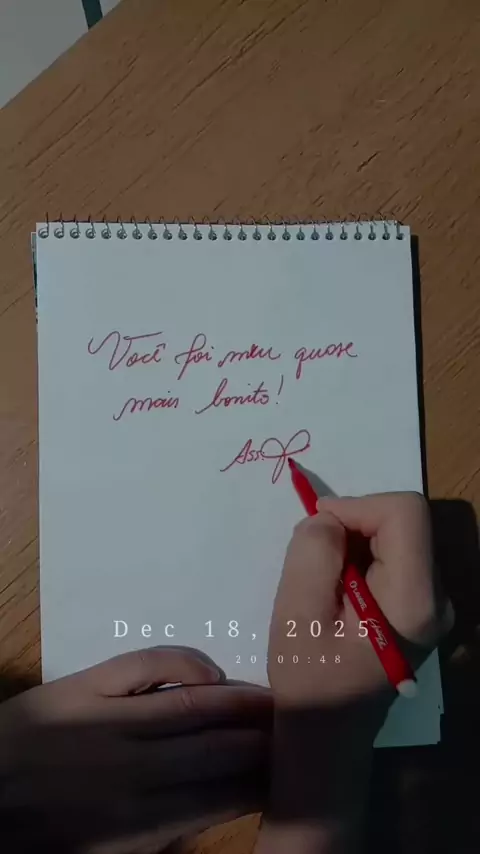 Você foi meu quase
mais bonito!
Ass:
Dec 18, 2025
20:00:48